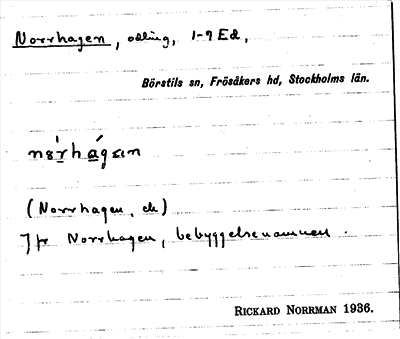 Norrhagen, odling, 1-9 Ed.
Börstils sn, Frösåkers hd, Stockholms län.
(Norrhagen, ek)
Jfr Norrhagen, bebyggelsenamnen.
RICKARD NORRMAN 1936.